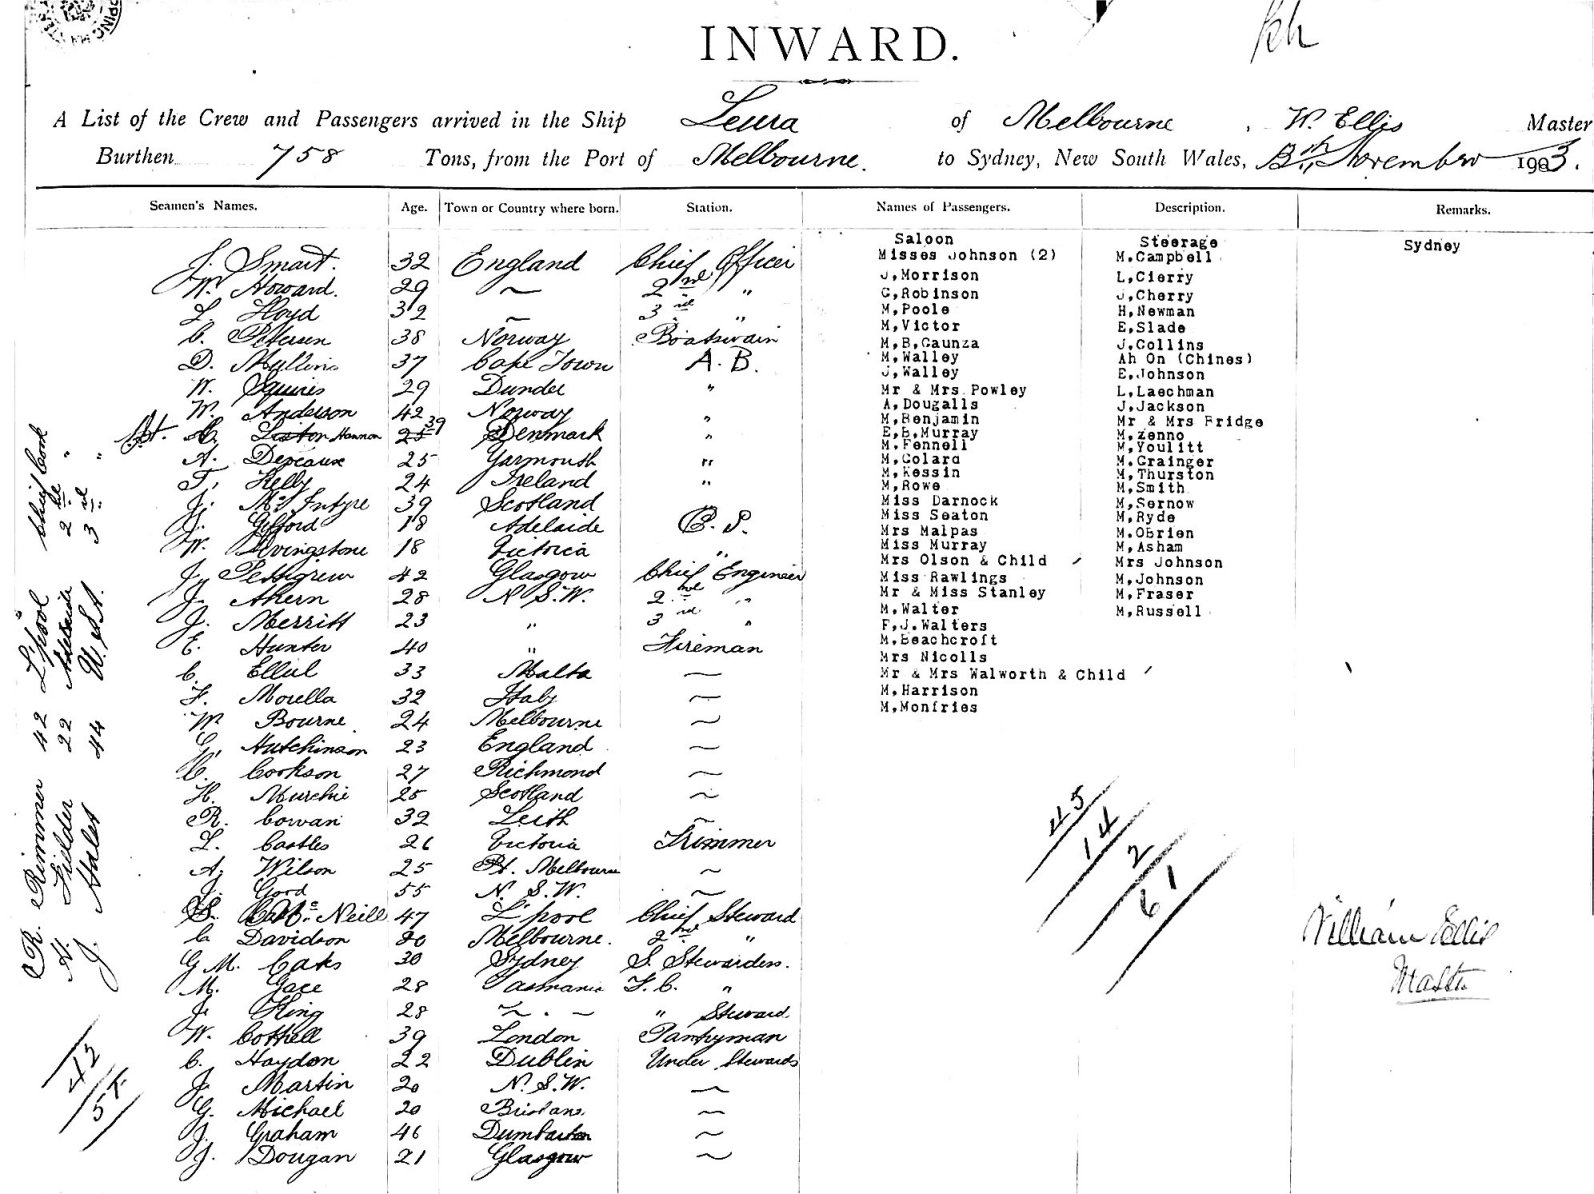 INWARD.
A List of the Crew and Passengers arrived in the Ship Leura of Melbourne, W. Ellis Master
Burthen 758 Tons, from the Port of Melbourne. to Sydney, New South Wales, November 1903.
Seamen's Names. Age. Town or Country where born. Station. Names of Passengers. Description. Remarks.
J. Smart. 32 England Chief Officer
W. Howard. 29 〃 2nd "
L. Lloyd 32 〃 3rd "
C. Petersen 38 Norway Boatswain
D. Mullins 37 Cape Town A.B.
W. Squires 29 Dundee "
W. Anderson 42 Norway "
Hannon 39 Denmark "
A. Depeaux 25 Yarmouth "
T. Kelly 24 Ireland "
J. McIntyre 39 Scotland
J. Gifford 18 Adelaide O.S.
W. Livingstone 18 Victoria "
J. Pettigrew 42 Glasgow Chief Engineer
J. Ahern 28 N.S.W. 2nd "
J. Merritt 23 " 3rd "
E. Hunter 40 " Fireman
C. Ellul 33 Malta 〃
F. Morella 32 Italy 〃
W. Bourne 24 Melbourne 〃
G. Hutchinson 23 England 〃
C. Cookson 27 Richmond 〃
H. Murchie 25 Scotland 〃
R. Cowan 32 Leith 〃
L. Castles 26 Victoria Trimmer
A. Wilson 25 Pt. Melbourne 〃
J. Good 55 N.S.W. 〃
S. McNeill 47 L'pool Chief Steward
C. Davidson 20 Melbourne. 2nd "
G.M. Oaks 30 Sydney S. Stewardess.
M. Gace 28 Tasmania F.C. "
J. King 28 〃 " Steward
W. Cottrell 39 London Pantryman
C. Haydon 22 Dublin Under Stewards
J. Martin 20 N.S.W. 〃
G. Michael 20 Brisbane 〃
J. Graham 46 Dumbarton 〃
J. Dougan 21 Glasgow 〃
R. Rimmer 42 L'pool Chief Cook
H. Fidder 22 Adelaide 2nd "
J. Hales 44 U.S.A. 3rd "
Saloon
Misses Johnson (2)
J,Morrison
C,Robinson
M,Poole
M,Victor
M,B,Gaunza
M,Walley
J,Walley
Mr & Mrs Powley
A,Dougalls
M,Benjamin
E,B,Murray
M,Fennell
M,Colard
M,Kessin
M,Rowe
Miss Darnock
Miss Seaton
Mrs Malpas
Miss Murray
Mrs Olson & Child
Miss Rawlings
Mr & Miss Stanley
M,Walter
F,J,Walters
M,Beachcroft
Mrs Nicolls
Mr & Mrs Walworth & Child
M,Harrison
M,Monfries
Steerage
M,Campbell
L,Cierry
J,Cherry
H,Newman
E,Slade
J,Collins
Ah On (Chines)
E,Johnson
L,Laechman
J,Jackson
Mr & Mrs Fridge
M,Zenno
M,Youlitt
M,Grainger
M,Thurston
M,Smith
M,Sernow
M,Ryde
M,Obrien
M,Asham
Mrs Johnson
M,Johnson
M,Fraser
M,Russell
Sydney
45
14
2
61
William Ellis
Master
42